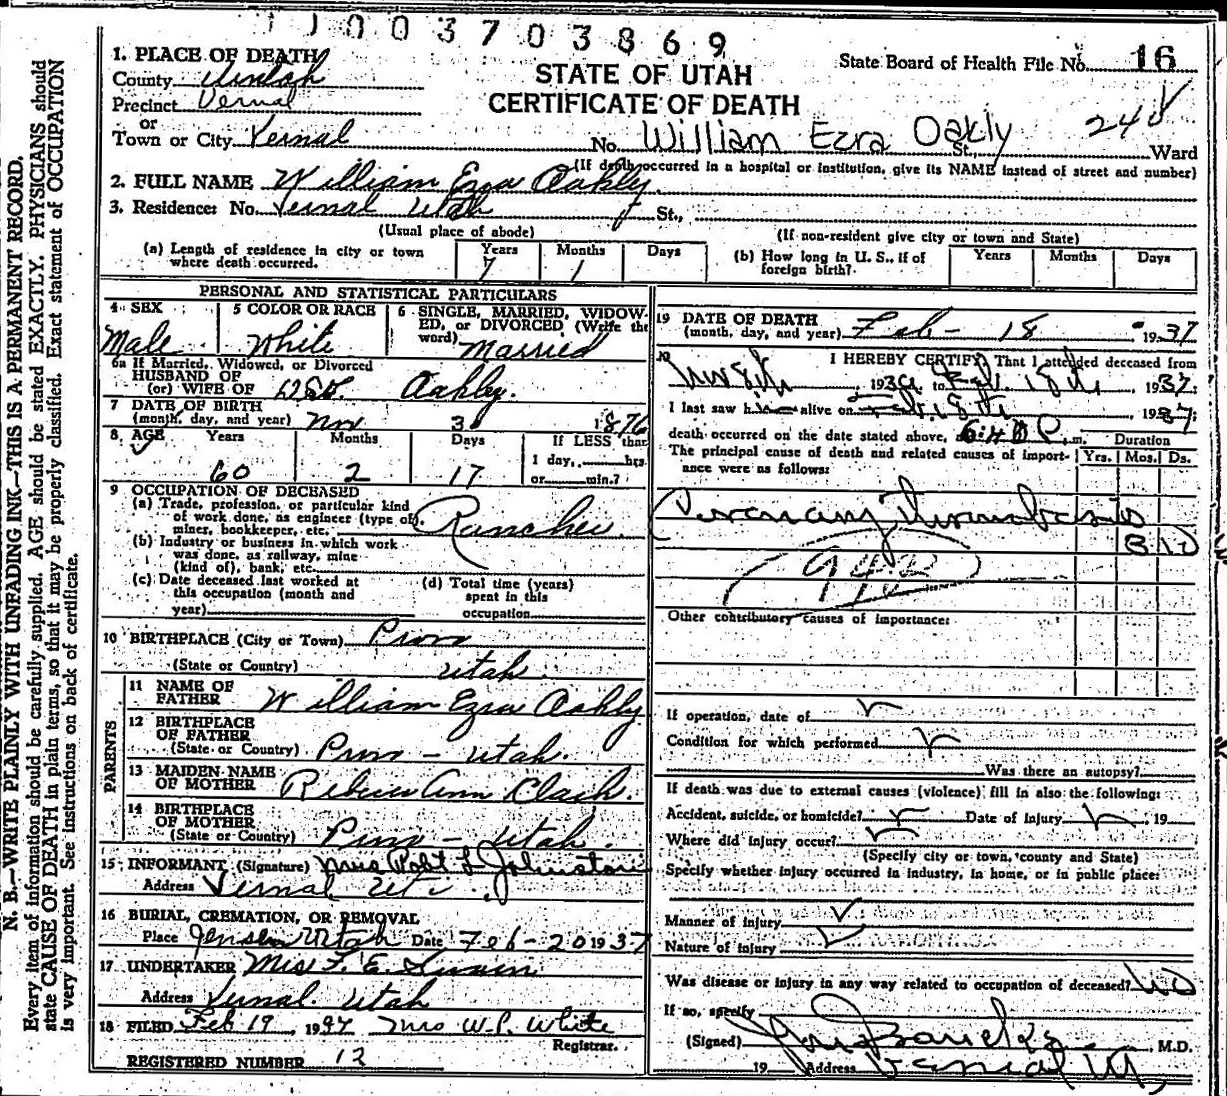 11003703869
1. PLACE OF DEATH
County Uintah
Precinct Vernal
or
Town or City Vernal
STATE OF UTAH
CERTIFICATE OF DEATH
State Board of Health File No. 16
No. William Ezra Oakly St., Ward
(If death occurred in a hospital or institution, give its NAME instead of street and number)
2. FULL NAME William Ezra Oakley
3. Residence: No. Vernal Utah St.,
(Usual place of abode) (If non-resident give city or town and State)
(a) Length of residence in city or town where death occurred. Years 7 Months 1 Days
(b) How long in U. S., if of foreign birth? Years Months Days
PERSONAL AND STATISTICAL PARTICULARS
4 SEX Male
5 COLOR OR RACE White
6 SINGLE, MARRIED, WIDOWED, or DIVORCED (Write the word) Married
6a If Married, Widowed, or Divorced
HUSBAND OF
(or) WIFE OF Oakley.
7 DATE OF BIRTH
(month, day, and year) Nov 3 1876
8 AGE Years 60 Months 2 Days 17 If LESS than
1 day, hrs.
or min.?
9 OCCUPATION OF DECEASED
(a) Trade, profession, or particular kind
of work done, as engineer (type of),
miner, bookkeeper, etc. Rancher
(b) Industry or business in which work
was done, as railway, mine
(kind of), bank, etc.
(c) Date deceased last worked at
this occupation (month and
year)
(d) Total time (years)
spent in this
occupation
10 BIRTHPLACE (City or Town) Provo
(State or Country) Utah
PARENTS
11 NAME OF
FATHER William Ezra Oakley
12 BIRTHPLACE
OF FATHER
(State or Country) Provo - Utah.
13 MAIDEN NAME
OF MOTHER Rebecca Ann Clark.
14 BIRTHPLACE
OF MOTHER
(State or Country) Provo - Utah.
15 INFORMANT (Signature) Mrs Robt L Johnston
Address Vernal Ut
16 BURIAL, CREMATION, OR REMOVAL
Place Jensen Utah Date Feb-20 1937
17 UNDERTAKER Mrs F. E. Swain
Address Vernal Utah
18 FILED Feb 19, 1937 Mrs W.P. White
Registrar.
REGISTERED NUMBER 12
19 DATE OF DEATH
(month, day, and year) Feb - 18 1937
20 I HEREBY CERTIFY, That I attended deceased from
to Feb. 18th, 1937.
I last saw h alive on Feb 18th 1937;
death occurred on the date stated above, at 6:40 P. m. Duration
The principal cause of death and related causes of importance were as follows: Yrs. Mos. Ds.
Coronary Thrombosis
94B
Other contributory causes of importance:
If operation, date of
Condition for which performed
Was there an autopsy?
If death was due to external causes (violence) fill in also the following:
Accident, suicide, or homicide? Date of injury , 19
Where did injury occur?
(Specify city or town, county and State)
Specify whether injury occurred in industry, in home, or in public place:
Manner of injury
Nature of injury
Was disease or injury in any way related to occupation of deceased? No
If so, specify
(Signed) M.D.
19 Address Vernal Ut,
N. B.—WRITE PLAINLY WITH UNFADING INK—THIS IS A PERMANENT RECORD.
Every item of information should be carefully supplied. AGE should be stated EXACTLY. PHYSICIANS should
state CAUSE OF DEATH in plain terms, so that it may be properly classified. Exact statement of OCCUPATION
is very important. See instructions on back of certificate.